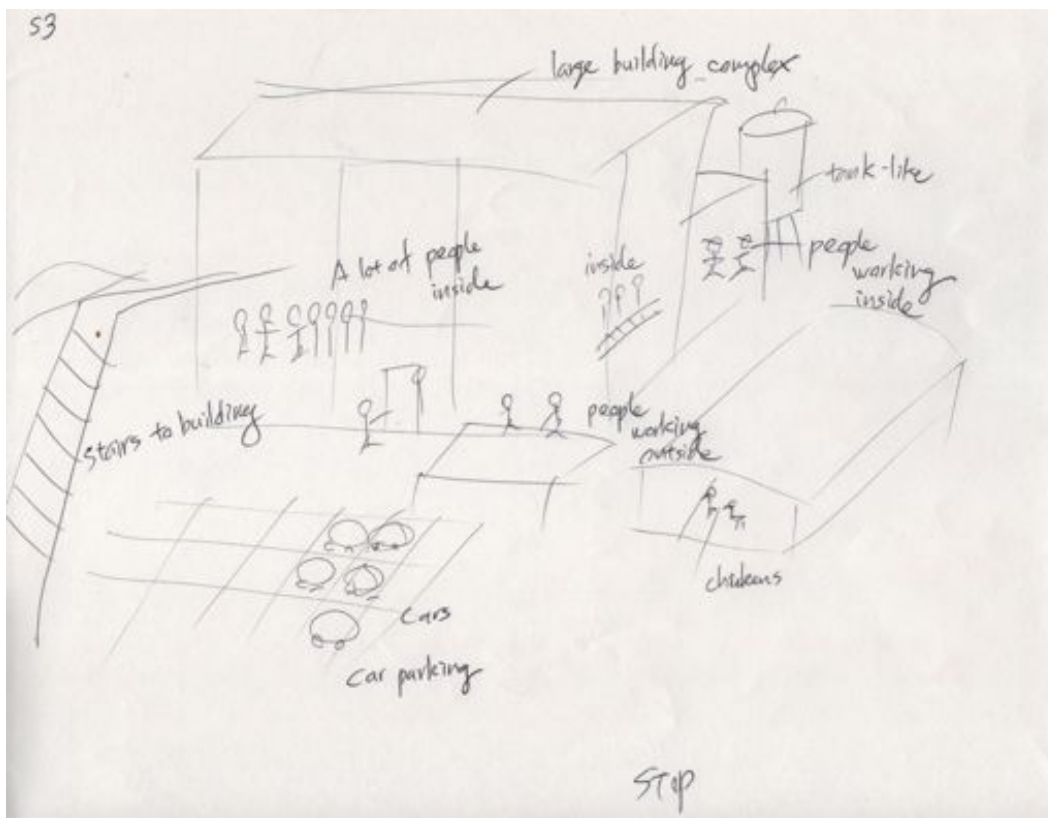 53
large building complex
tank-like
people
working
inside
A lot of people
inside
inside
stairs to building
people
working
outside
chickens
cars
car parking
STOP